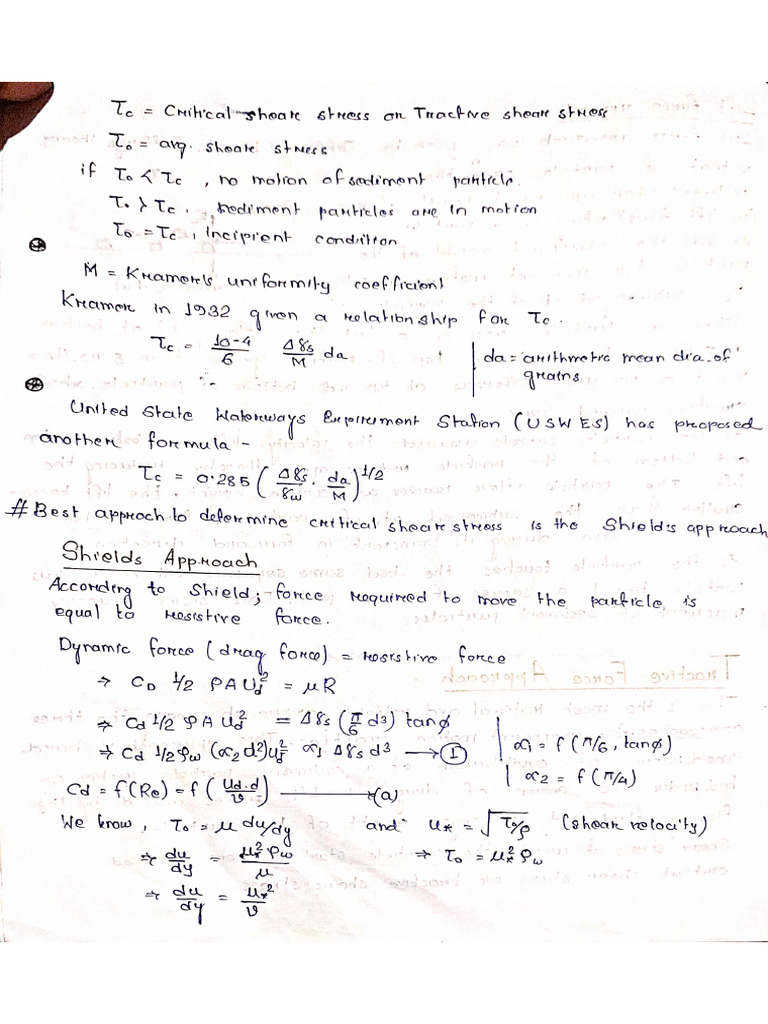 τc = Critical shear stress or Tractive shear stress
τo = avg. shear stress
if τo < τc , no motion of sediment particle.
τo > τc . , sediment particles are in motion
τo = τc , Incipient condition
M = Kramer's uniformity coefficient
Kramer in 1932 given a relationship for τc.
τc = 10-4/6 Δγs/M da | da = arithmetic mean dia. of grains
United State Waterways Expirement Station (USWES) has proposed
another formula -
τc = 0.285 (Δγs/γw . da/M)^1/2
# Best approch to determine critical shear stress is the Shield's approach
Shields Approach
According to Shield; force required to move the particle is
equal to resistive force.
Dynamic force (drag force) = resistive force
→ CD 1/2 ρA Ud² = μR
→ Cd 1/2 ρA Ud² = Δγs (π/6 d³) tanφ
→ Cd 1/2 ρw (α2 d²) ud² α1 Δγs d³ → (I) | α1 = f(π/6, tanφ)
| α2 = f(π/4)
Cd = f(Re) = f(Ud.d/ν) → (a)
We know, τo = μ du/dy and u* = √τo/ρ (shear velocity)
→ du/dy = u*² ρw/μ → τo = u*² ρw
→ du/dy = u*²/ν